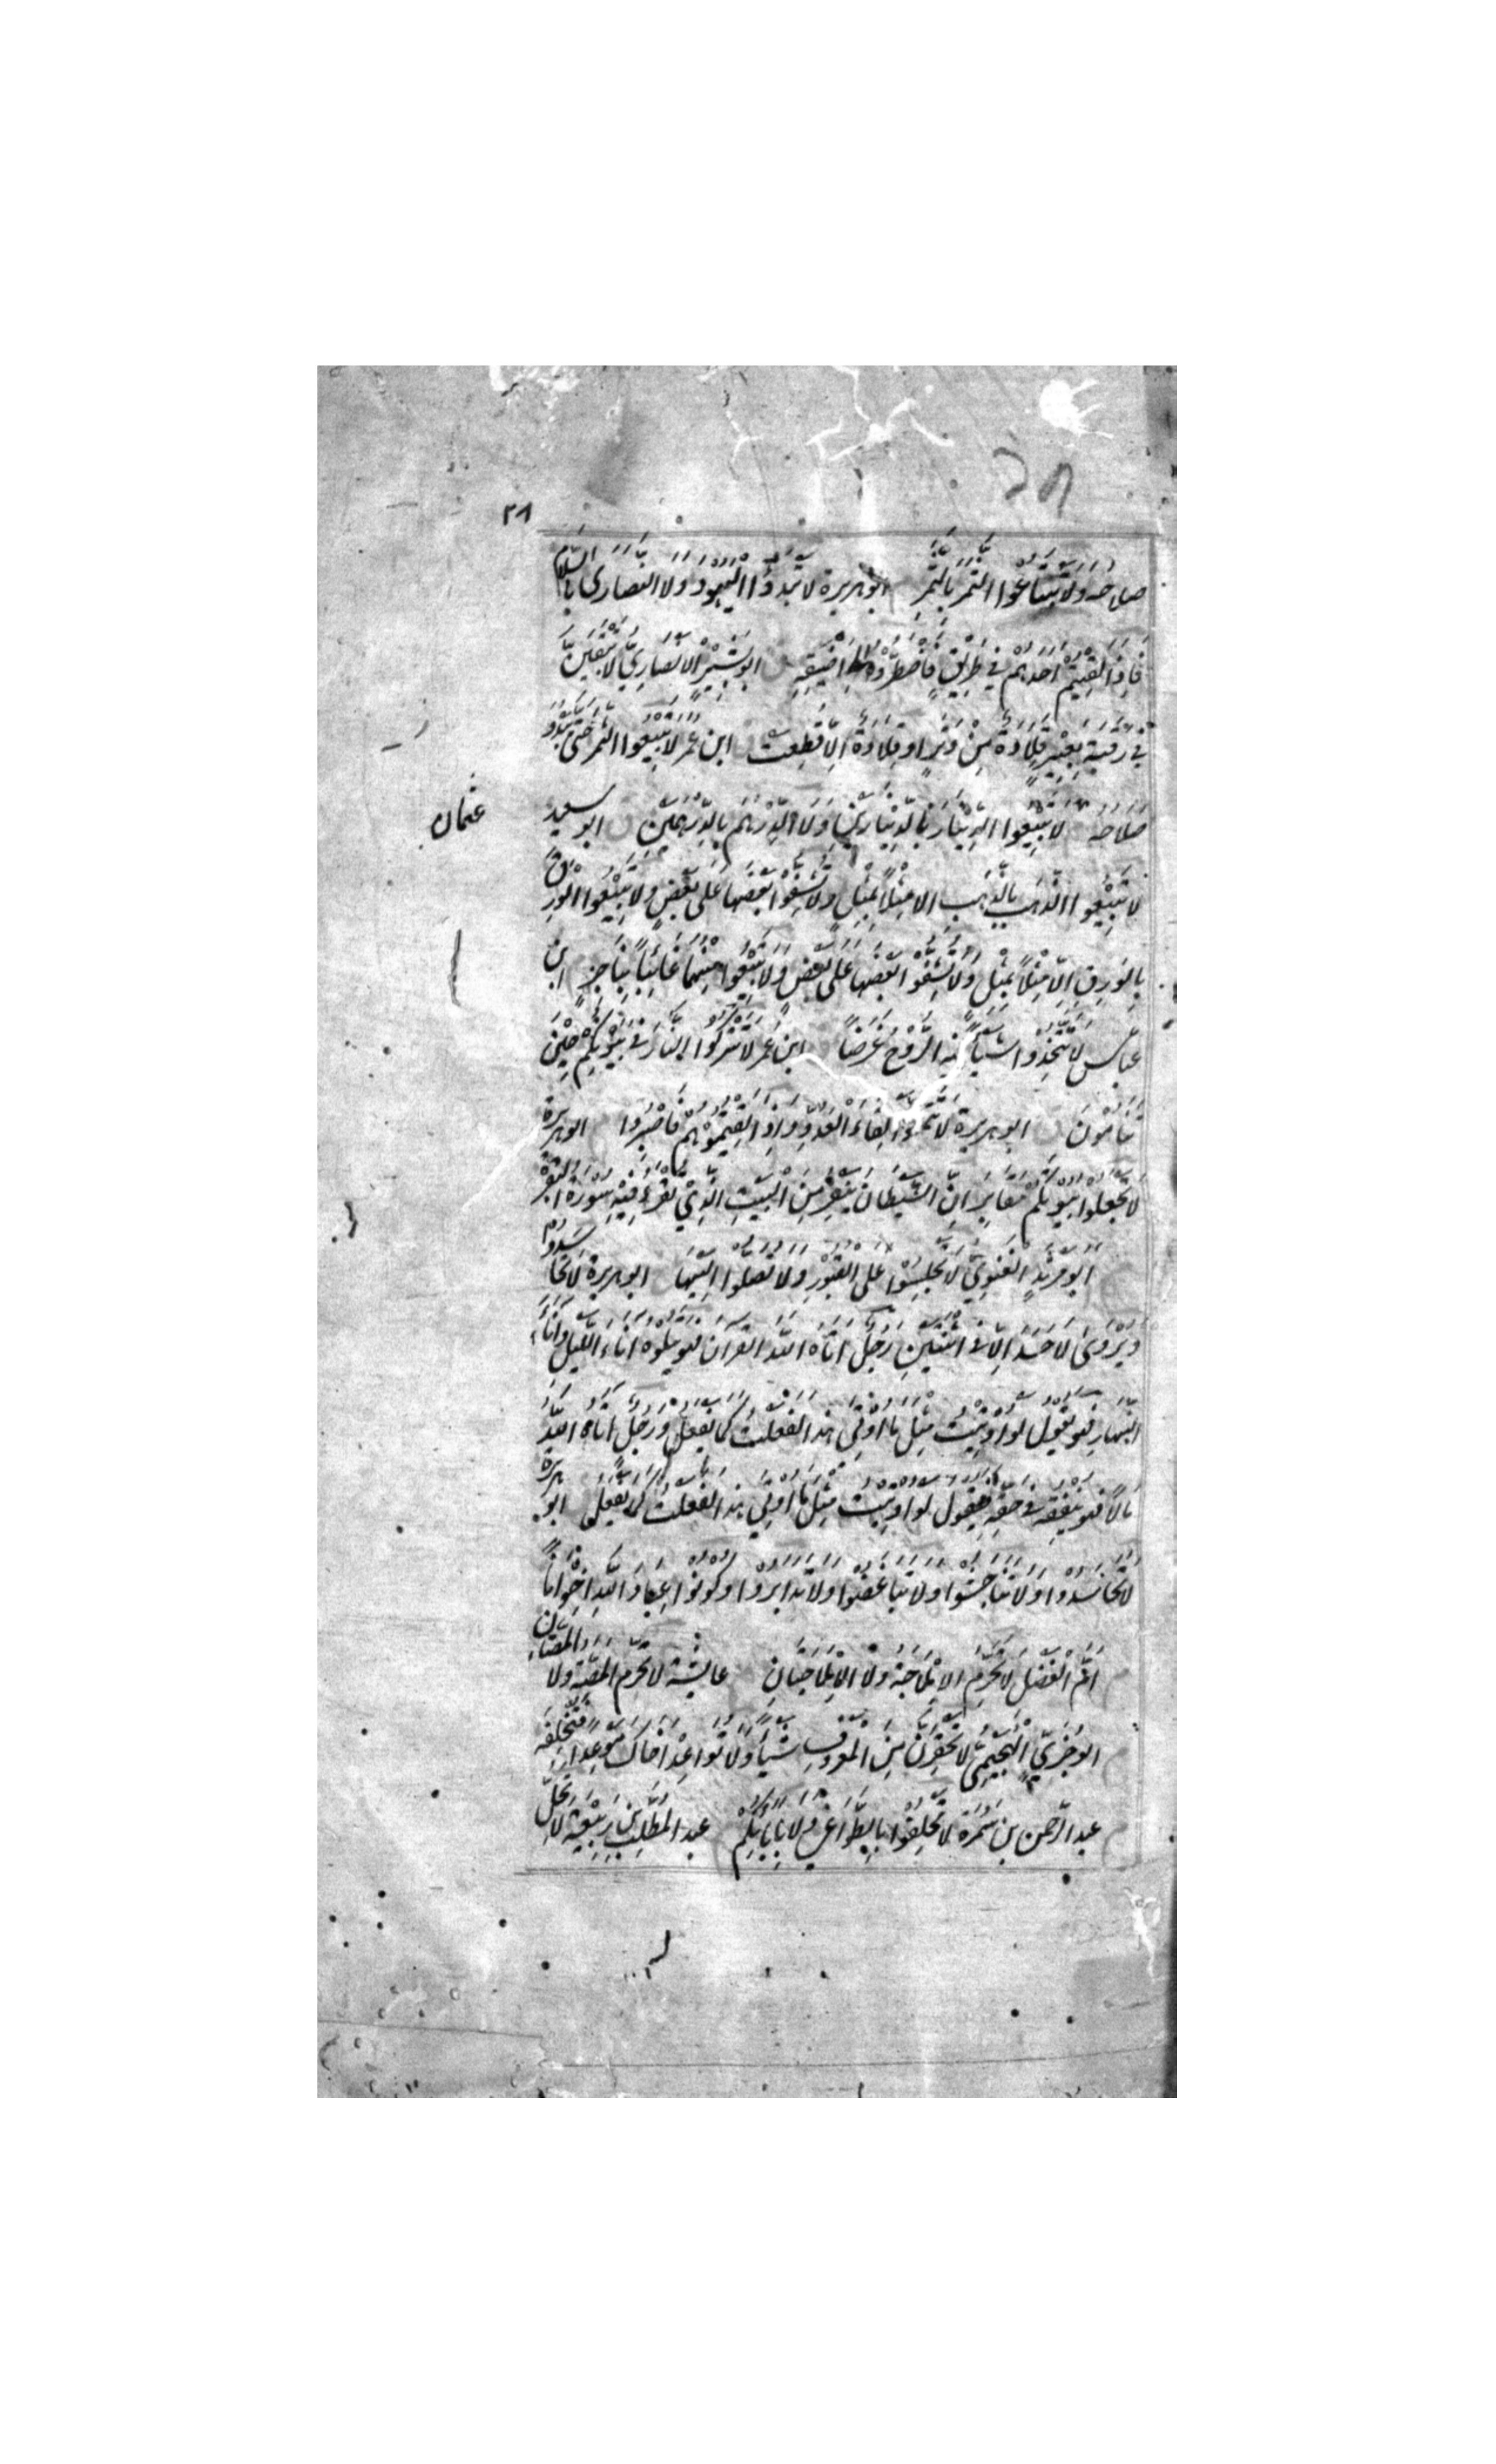 ٣٨
صلاحه ولا تبتاعوا التمر بالتمر ابو هريرة لا تبدؤا اليهود ولا النصارى بالسلام
فاذا لقيتم احدهم في طريق فاضطروه الى اضيقه ابو بشير الانصاري لا تبقين
في رقبة بعير قلادة من وتر او قلادة الا قطعت ابن عمر لا تبيعوا الثمر حتى يبدو
صلاحه عثمان لا تبيعوا الدينار بالدينارين ولا الدرهم بالدرهمين ابو سعيد
لا تبيعوا الذهب بالذهب الا مثلا بمثل ولا تشفوا بعضها على بعض ولا تبيعوا الورق
بالورق الا مثلا بمثل ولا تشفوا بعضها على بعض ولا تبيعوا منها غائبا بناجز ابن
عباس لا تتخذوا شيأ فيه الروح غرضا ابن عمر لا تتركوا النار في بيوتكم حين
تنامون ابو هريرة لا تتمنوا لقاء العدو واذا لقيتموهم فاصبروا ابو هريرة
لا تجعلوا بيوتكم مقابر ان الشيطان ينفر من البيت الذي تقرء فيه سورة البقرة
ابو مرثد الغنوي لا تجلسوا على القبور ولا تصلوا اليها ابو هريرة لا تحاسدوا
ويروى لا حسد الا في اثنتين رجل اتاه الله القران فهو يتلوه اناء الليل واناء
النهار فهو يقول لو اوتيت مثل ما اوتي هذا لفعلت كما يفعل ورجل اتاه الله
مالا فهو ينفقه في حقه فيقول لو اوتيت مثل ما اوتي هذا لفعلت كما يفعل ابو هريرة
لا تحاسدوا ولا تناجشوا ولا تباغضوا ولا تدابروا وكونوا عباد الله اخوانا
ام الفضل لا تحرم الاملاجة ولا الاملاجتان عايشة لا تحرم المصة ولا المصتان
ابو جري الهجيمي لا تحقرن من المعروف شيأ ولا تواعد اخاك موعدا فتخلفه
عبد الرحمن بن سمرة لا تحلفوا بالطواغي ولا بابائكم عبد المطلب بن ربيعة لا تحل